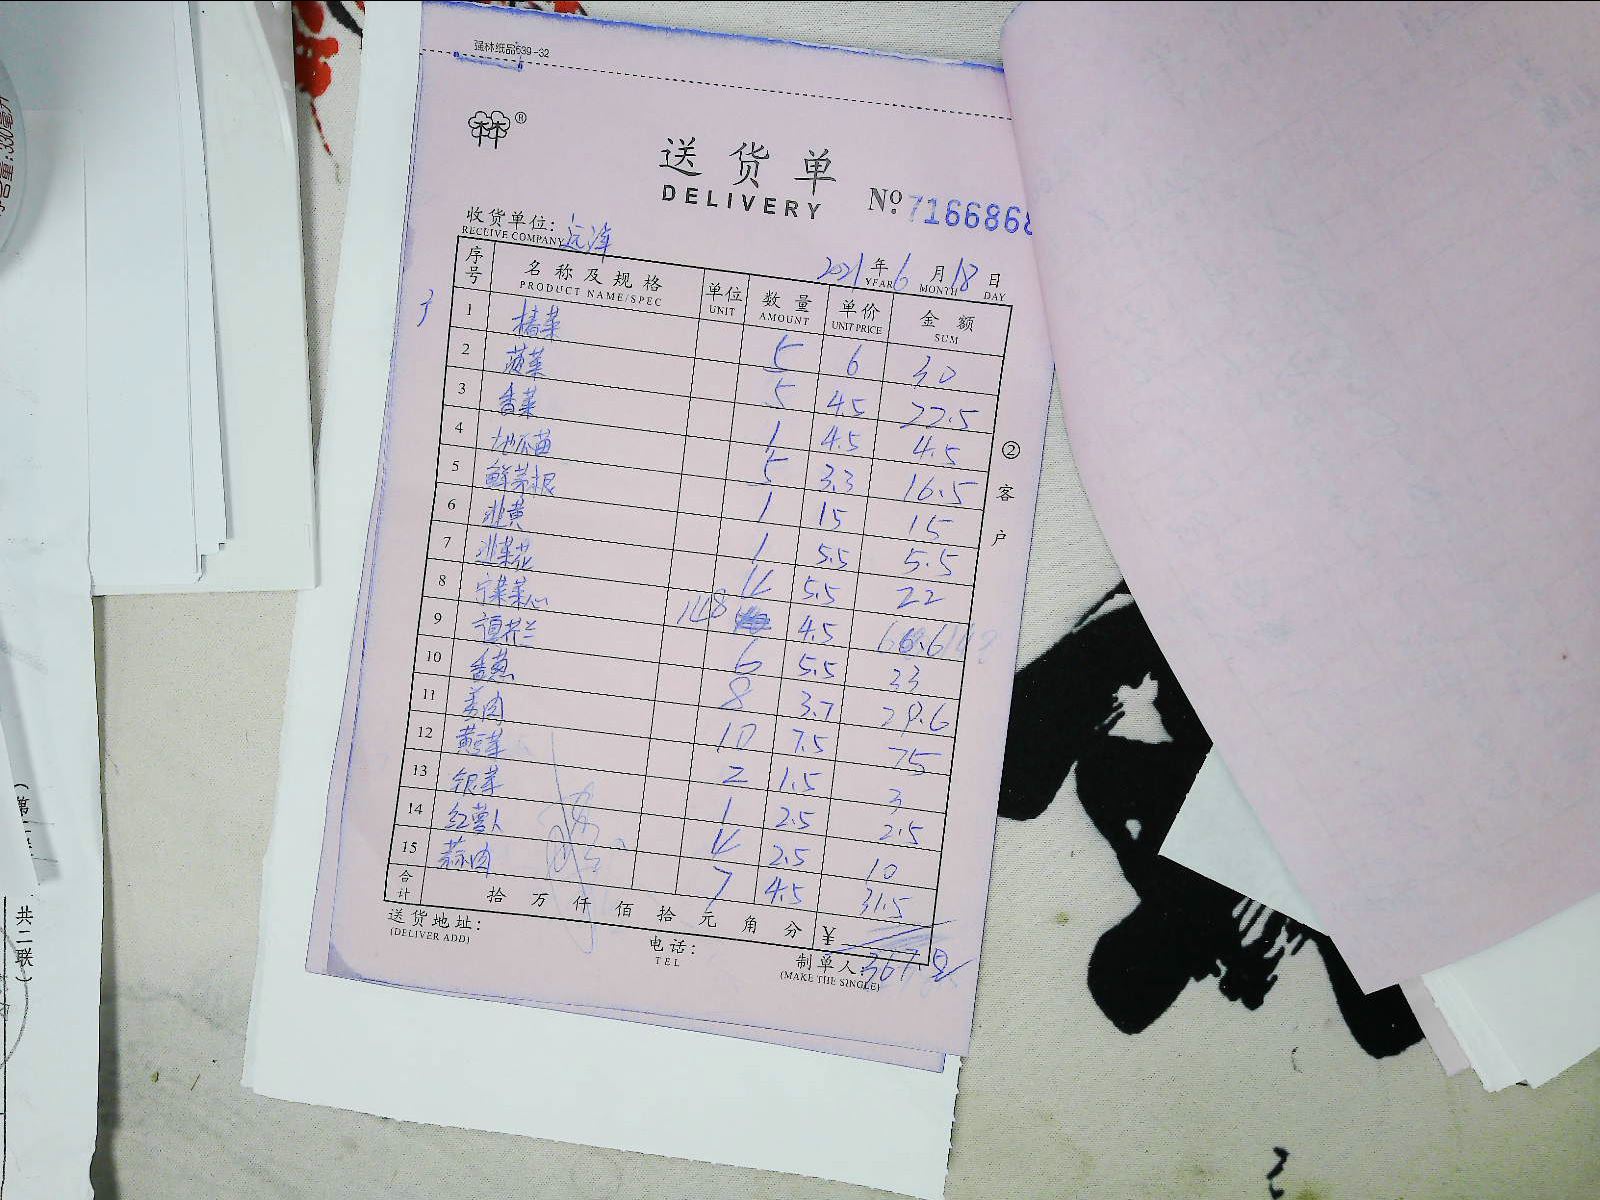 强林纸品539-32
®
送货单
DELIVERY
№ 7166868
收货单位:
RECEIVE COMPANY
2021年6月18日
YEAR MONTH DAY
序号 名称及规格 单位 数量 单价 金额
PRODUCT NAME/SPEC UNIT AMOUNT UNIT PRICE SUM
1 椿菜 5 6 30
2 菠菜 5 4.5 22.5
3 香菜 1 4.5 4.5
4 地瓜苗 5 3.3 16.5
5 鲜茅根 1 15 15
6 韭黄 1 5.5 5.5
7 韭菜花 4 5.5 22
8 宁菜菜心 14.8 4.5 66.6
9 6 5.5 33
10 香葱 8 3.7 29.6
11 姜肉 10 7.5 75
12 黄豆菜 2 1.5 3
13 银菜 1 2.5 2.5
14 红萝卜 4 2.5 10
15 蒜肉 7 4.5 31.5
合计 拾 万 仟 佰 拾 元 角 分 ¥
367.2
送货地址:
(DELIVER ADD)
电话:
TEL
制单人:
(MAKE THE SINGLE)
②客户
净含量:330毫升
共二联)